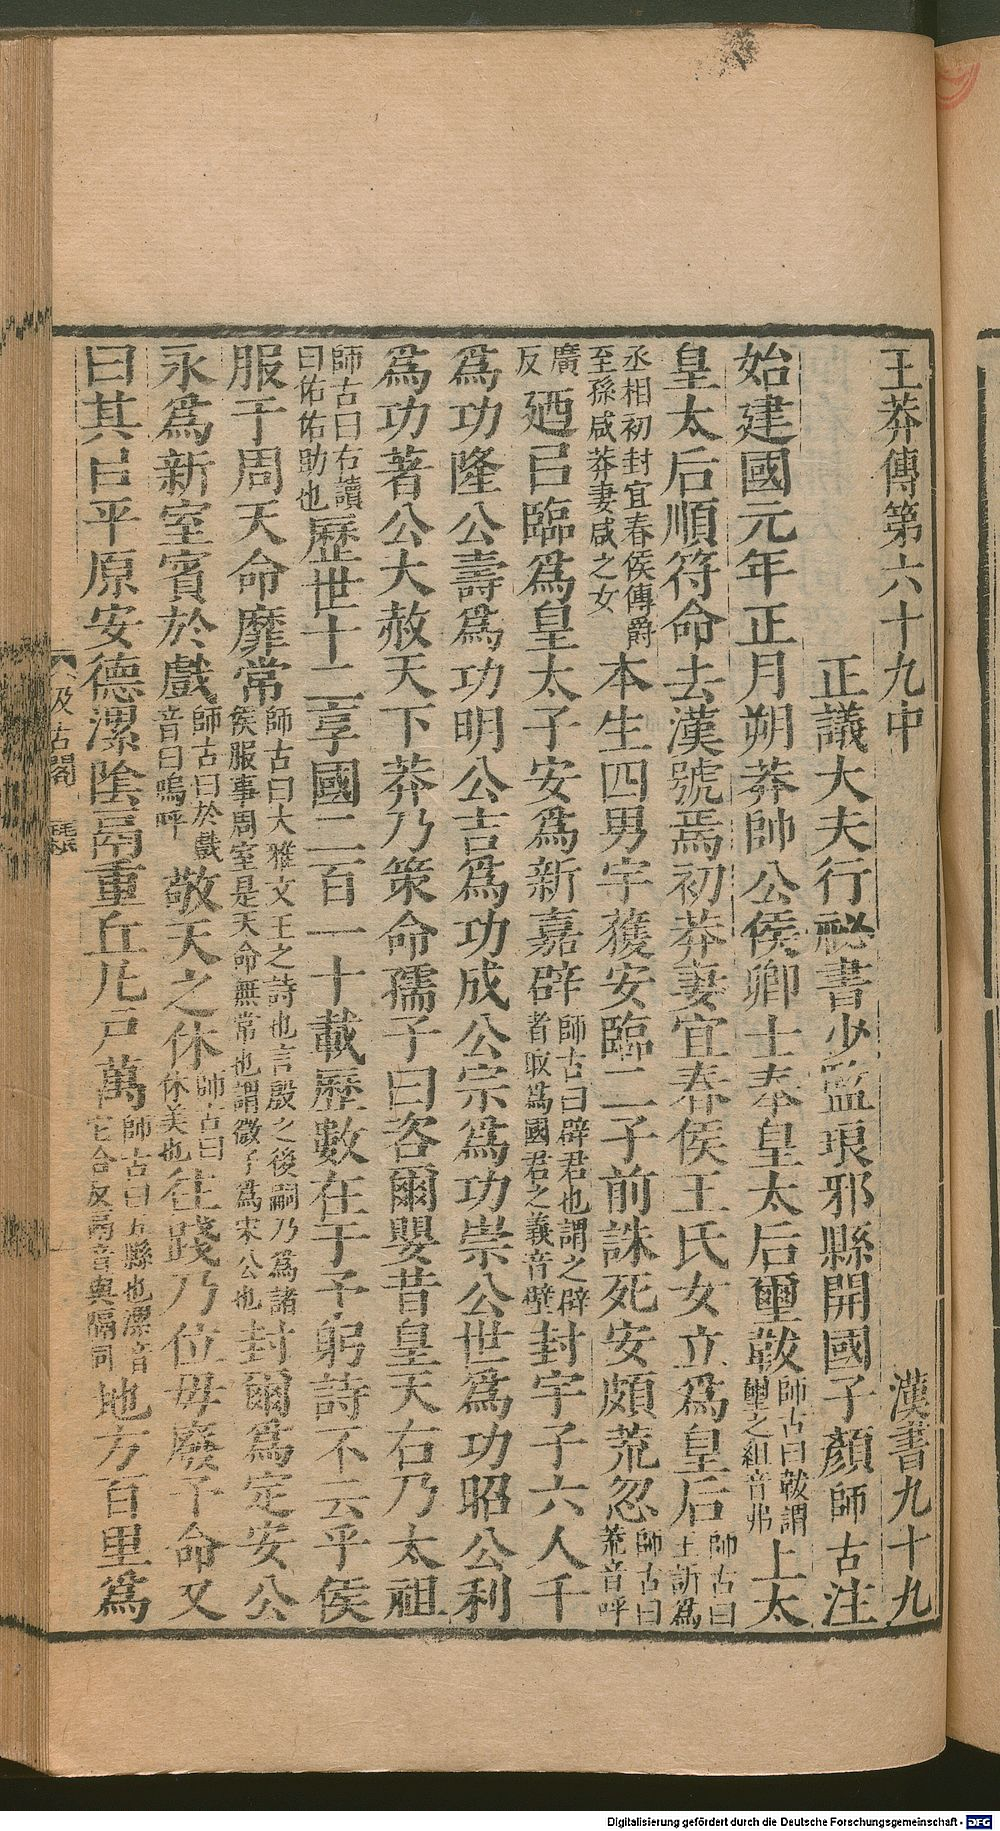 王莽傳第六十九中　漢書九十九
正議大夫行祕書少監琅邪縣開國子顏師古注
始建國元年正月朔莽帥公侯卿士奉皇太后璽韍師古曰韍謂璽之組音弗上太
皇太后順符命去漢號焉初莽妻宜春侯王氏女立爲皇后師古曰王訢爲
丞相初封宜春侯傳爵至孫咸莽妻咸之女本生四男宇獲安臨二子前誅死安頗荒忽師古曰荒音呼
廣反廼㠯臨爲皇太子安爲新嘉辟師古曰辟君也謂之辟者取爲國君之義音壁封宇子六人千
爲功隆公壽爲功明公吉爲功成公宗爲功崇公世爲功昭公利
爲功著公大赦天下莽乃策命孺子曰咨爾嬰昔皇天右乃太祖
師古曰右讀曰佑佑助也歷世十二享國二百一十載歷數在于予躬詩不云乎侯
服于周天命靡常師古曰大雅文王之詩也言殷之後嗣乃爲諸侯服事周室是天命無常也謂微子爲宋公也封爾爲定安公
永爲新室賓於戲師古曰於戲音曰嗚呼敬天之休師古曰休美也往踐乃位毋廢予命又
曰其㠯平原安德漯陰鬲重丘凡戶萬師古曰五縣也漯音它合反鬲音與隔同地方百里爲
汲古閣
毛氏
Digitalisierung gefördert durch die Deutsche Forschungsgemeinschaft - DFG